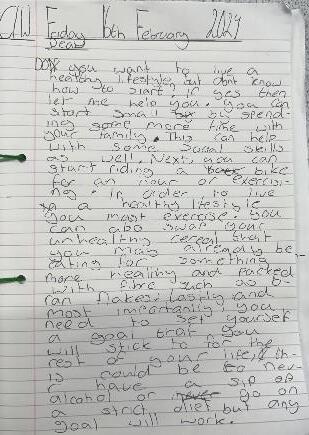 CW Friday 16th February 2024
Dear
Do you want to live a
healthy lifestyle but dont know
how to start? If yes then
let me help you. You can
start small by spend-
ing some more time with
your family. This can help
with some social skills
as well. Next, you can
start riding a bike
for an hour or exercisi-
ng. In order to live
a healthy lifestyle
you most exercise. You
can also swap your
unhealthy cereal that
you may already be
eating for something
more healthy and packed
with fibre such as b-
ran flakes. Lastly and
most importantly, you
need to set yourself
a goal that you
will stick to for the
rest of your life, th-
is could be to nev-
er have a sip of
alcohol or go on
a strict diet but any
goal will work.